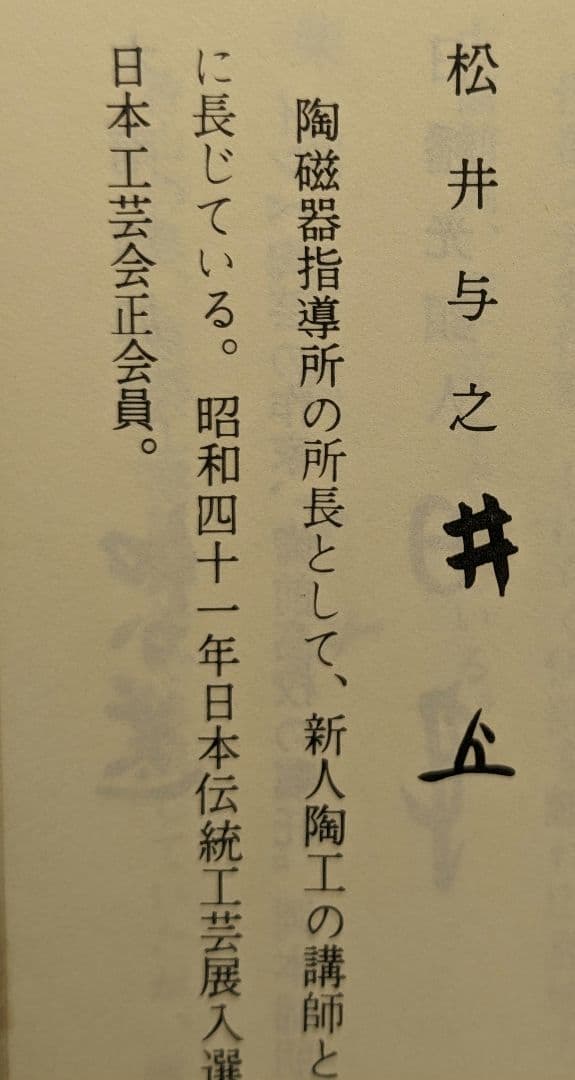 松井与之
井
陶磁器指導所の所長として、新人陶工の講師と
に長じている。昭和四十一年日本伝統工芸展入選
日本工芸会正会員。